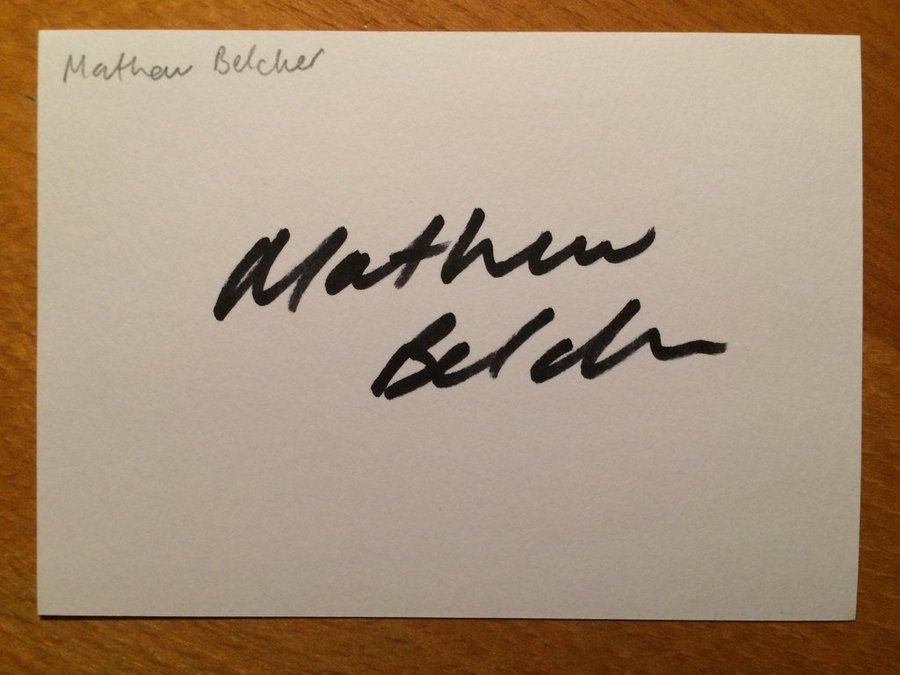 Mathew Belcher
Mathew
Belcher